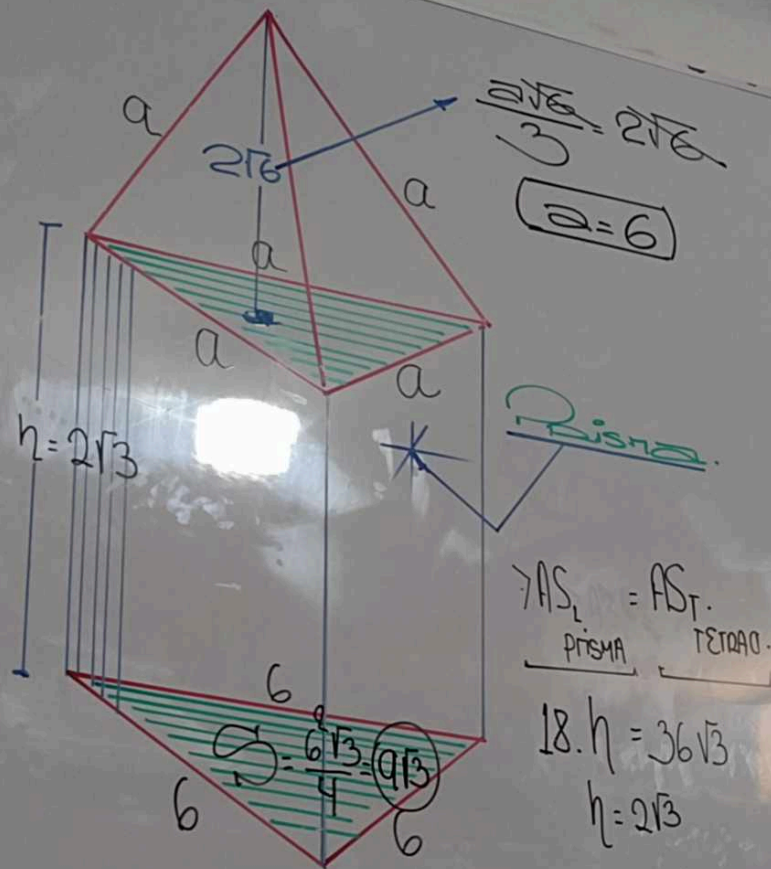 a
2√6
a√6/3 = 2√6
a
a = 6
a
a
a
h = 2√3
Prisma.
> AS_L = AS_T.
PRISMA TETRAD.
18.h = 36√3
h = 2√3
6
S = 6²√3/4 = 9√3
6
6